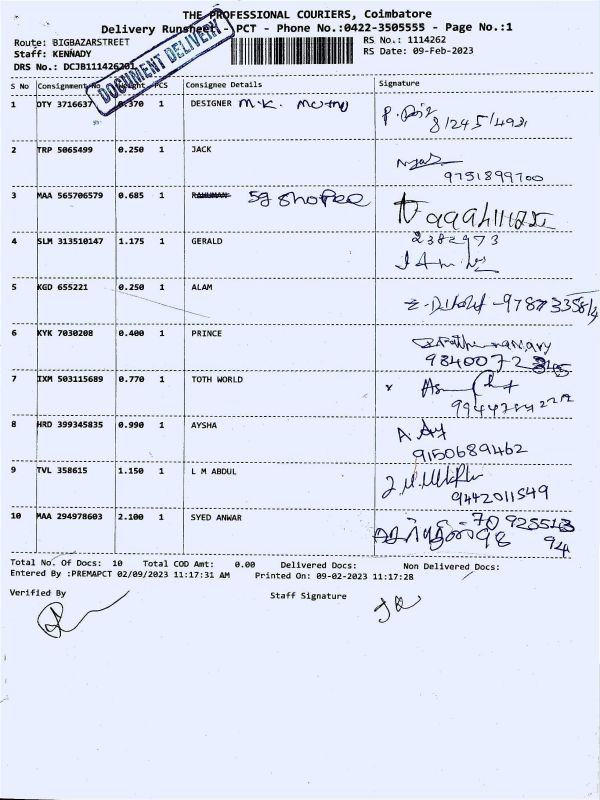 THE PROFESSIONAL COURIERS, Coimbatore
Delivery Runsheet - PCT - Phone No.:0422-3505555 - Page No.:1
Route: BIGBAZARSTREET RS No.: 1114262
Staff: KENNADY RS Date: 09-Feb-2023
DRS No.: DCJB111426201
DOCUMENT DELIVERY
S No Consignment No Weight PCS Consignee Details Signature
1 DTY 3716637 0.370 1 DESIGNER M.K.
2 TRP 5065499 0.250 1 JACK
9751899700
3 MAA 565706579 0.685 1 RAHUMAN
4 SLM 313510147 1.175 1 GERALD 2382973
5 KGD 655221 0.250 1 ALAM
6 KYK 7030208 0.400 1 PRINCE
7 IXM 503115689 0.770 1 TOTH WORLD x
8 HRD 399345835 0.990 1 AYSHA
9150689462
9 TVL 358615 1.150 1 L M ABDUL
9442011549
10 MAA 294978603 2.100 1 SYED ANWAR
Total No. Of Docs: 10 Total COD Amt: 0.00 Delivered Docs: Non Delivered Docs:
Entered By :PREMAPCT 02/09/2023 11:17:31 AM Printed On: 09-02-2023 11:17:28
Verified By Staff Signature